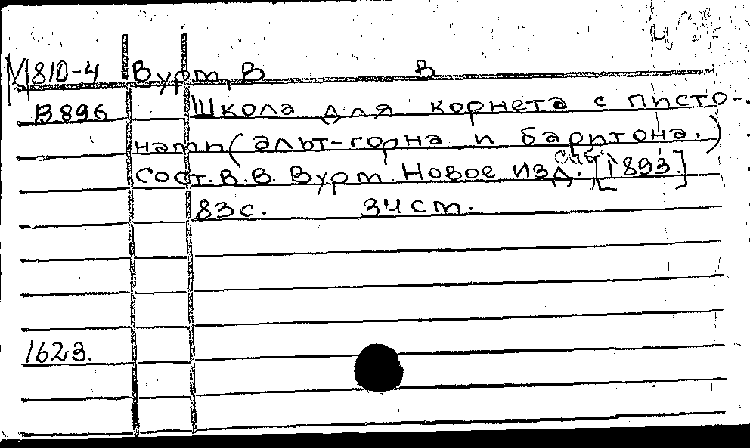 М810-4 Вурм, В В
В896 Школа для корнета с писто-
нами (альт-горна и баритона.)
Сост. В.В. Вурм. Новое изд. СПб. [1893.]
83с. 34 cm.
1623.